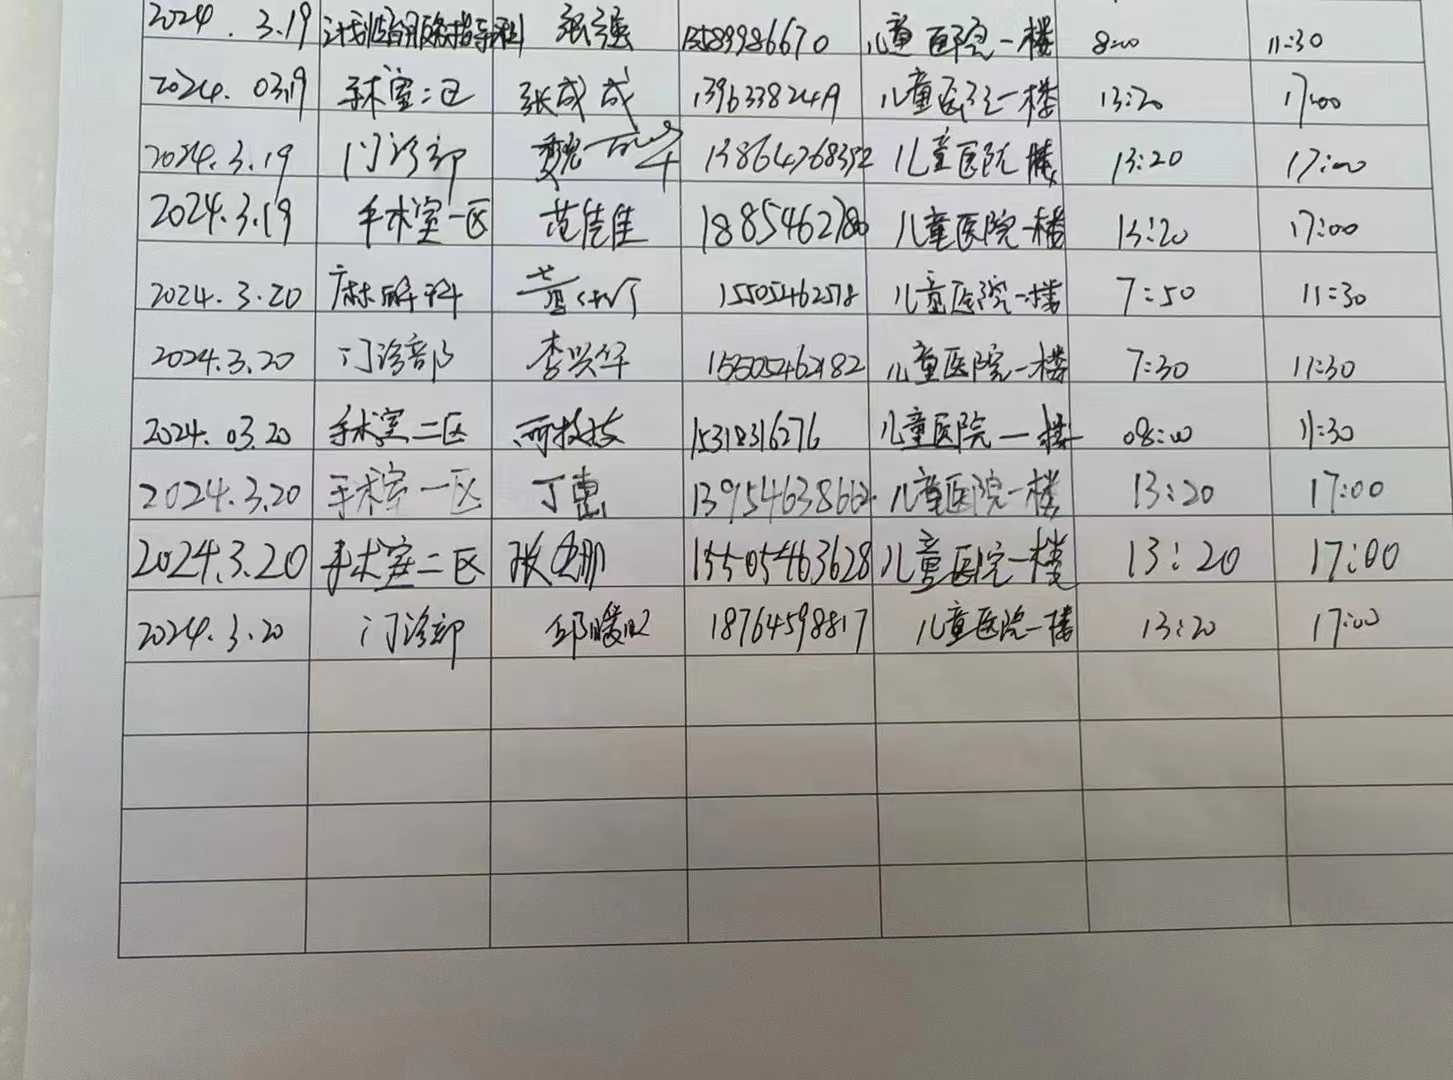 2024.3.19 计划生育服务指导科 张强 儿童医院一楼 8:00 11:30
2024.03.19 手术室二区 张成成 儿童医院一楼 13:20 17:00
2024.3.19 门诊部 魏 13864768392 儿童医院 楼 13:20 17:00
2024.3.19 手术室一区 范佳佳 1885462780 儿童医院一楼 13:20 17:00
2024.3.20 麻醉科 15505462578 儿童医院一楼 7:50 11:30
2024.3.20 门诊部 李兴华 儿童医院一楼 7:30 11:30
2024.03.20 手术室二区 15318316276 儿童医院一楼 08:00 11:30
2024.3.20 手术室一区 丁惠 13954638662 儿童医院一楼 13:20 17:00
2024.3.20 手术室二区 张 15505463628 儿童医院一楼 13:20 17:00
2024.3.20 门诊部 邱 18764598817 儿童医院一楼 13:20 17:00